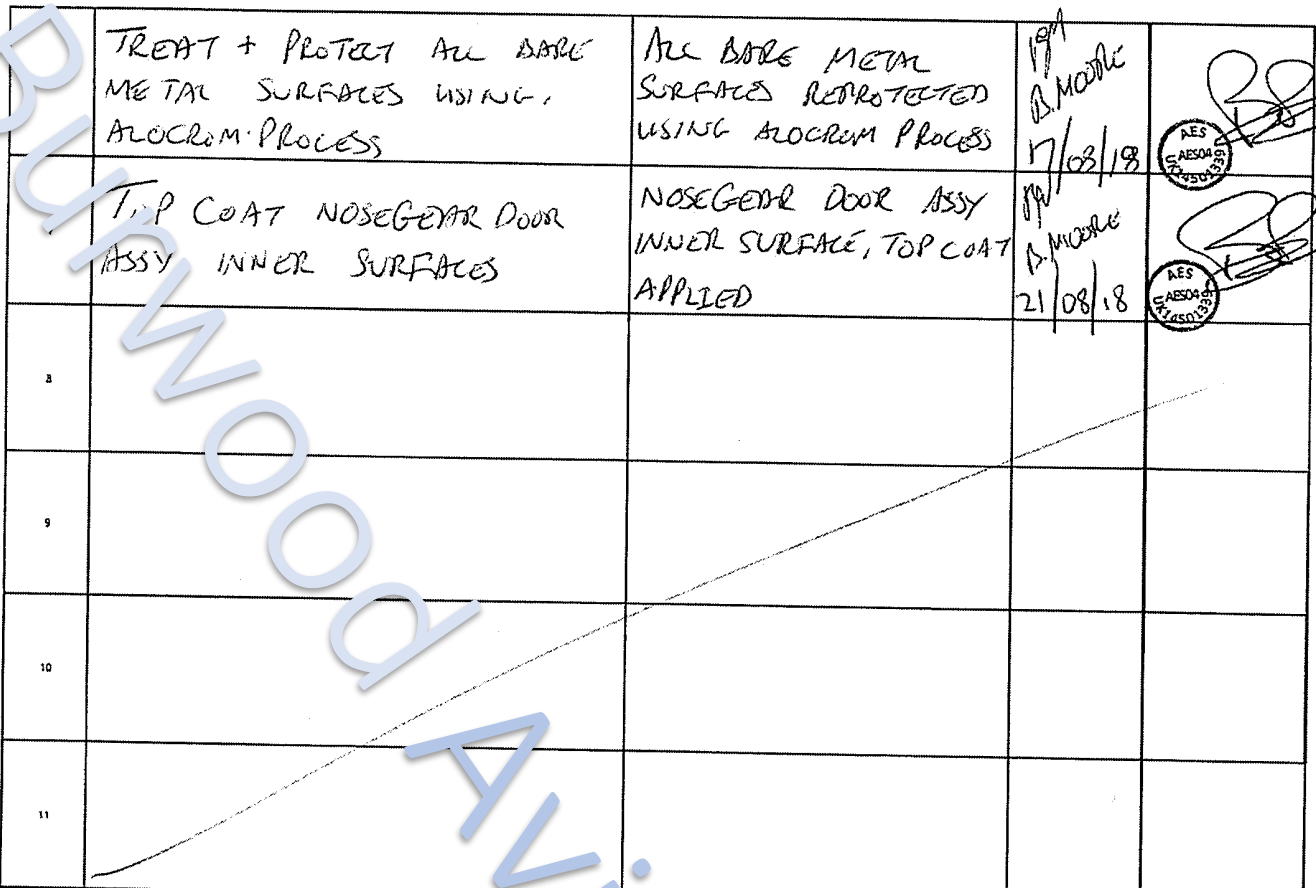 TREAT + PROTECT ALL BARE
METAL SURFACES USING.
ALOCROM PROCESS
ALL BARE METAL
SURFACES REPROTECTED
USING ALOCROM PROCESS
B. MOORE
17/08/18
AES
AES04
UK.145.01339
TOP COAT NOSEGEAR DOOR
ASSY INNER SURFACES
NOSEGEAR DOOR ASSY
INNER SURFACE, TOP COAT
APPLIED
B. MOORE
21/08/18
AES
AES04
UK.145.01339
8
9
10
11
Burwood Avi